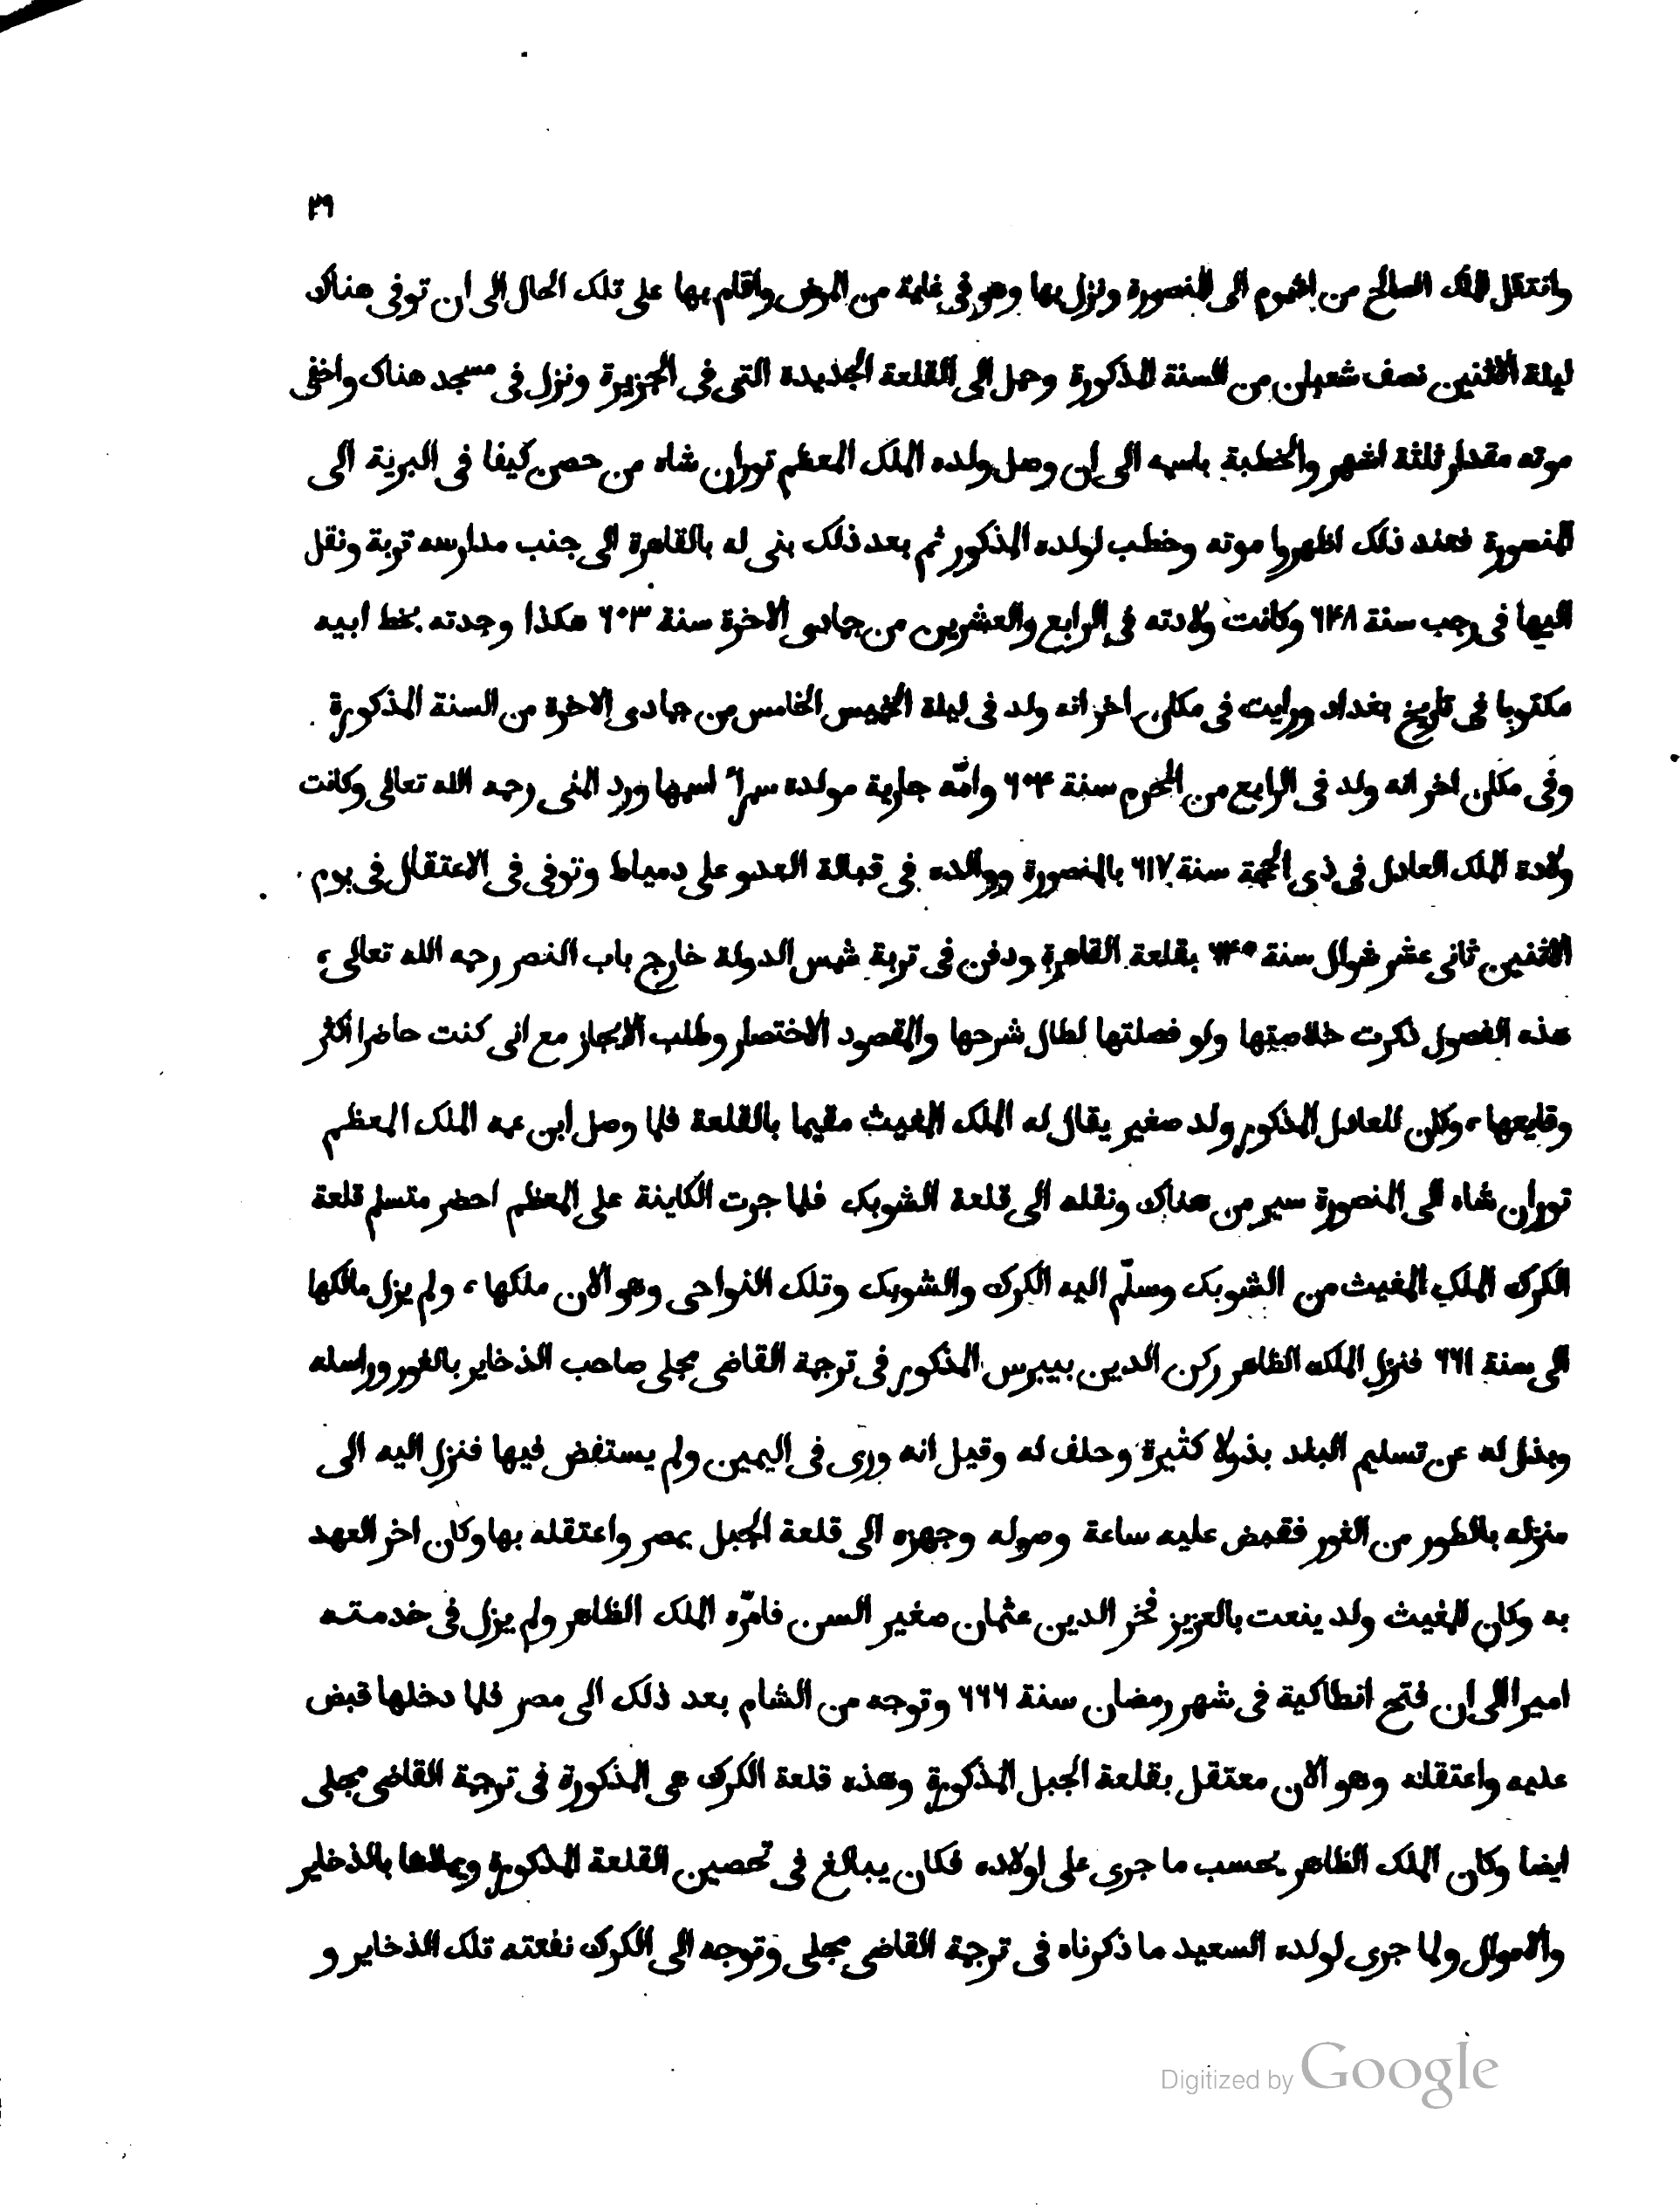 ٣٩
وانتقل الملك الصالح من اشموم الى المنصورة ونزل بها وهو فى غاية من المرض واقام بها على تلك الحال الى ان توفى هناك
ليلة الاثنين نصف شعبان من السنة المذكورة وحمل الى القلعة الجديدة التى فى الجزيرة ونزل فى مسجد هناك واخفى
موته مقدار ثلثة اشهر والخطبة باسمه الى ان وصل ولده الملك المعظم توران شاه من حصن كيفا فى البرية الى
المنصورة فعند ذلك اظهروا موته وخطب لولده المذكور ثم بعد ذلك بنى له بالقاهرة الى جنب مدارسه تربة ونقل
اليها فى رجب سنة ٦۴٨ وكانت ولادته فى الرابع والعشرين من جمادى الاخرة سنة ٦٠٣ هكذا وجدته بخط ابيه
مكتوبا فى تاريخ بغداد ورايت فى مكان اخر انه ولد فى ليلة الخميس الخامس من جمادى الاخرة من السنة المذكورة
وفى مكان اخر انه ولد فى الرابع من المحرم سنة ٦٠۴ وامّه جارية مولدة سمراء اسمها ورد المنى رحمه الله تعالى وكانت
ولادة الملك العادل فى ذى الحجة سنة ٦١٧ بالمنصورة ووالده فى قبالة العدو على دمياط وتوفى فى الاعتقال فى يوم
الاثنين ثانى عشر شوال سنة ٦۴٥ بقلعة القاهرة ودفن فى تربة شمس الدولة خارج باب النصر رحمه الله تعالى ،
هذه الفصول ذكرت خلاصتها ولو فصلتها لطال شرحها والمقصود الاختصار وطلب الايجاز مع انى كنت حاضرا اكثر
وقايعها ، وكان للعادل المذكور ولد صغير يقال له الملك المغيث مقيما بالقلعة فلما وصل ابن عمه الملك المعظم
توران شاه الى المنصورة سير من هناك ونقله الى قلعة الشوبك فلما جرت الكاينة على المعظم احضر متسلم قلعة
الكرك الملك المغيث من الشوبك وسلّم اليه الكرك والشوبك وتلك النواحى وهو الان ملكها ، ولم يزل مالكها
الى سنة ٦٦١ فنزل الملك الظاهر ركن الدين بيبرس المذكور فى ترجمة القاضى مجلى صاحب الذخاير بالغور وراسله
وبذل له عن تسليم البلد بذولا كثيرة وحلف له وقيل انه ورى فى اليمين ولم يستفض فيها فنزل اليه الى
منزله بالطور من الغور فقبض عليه ساعة وصوله وجهزه الى قلعة الجبل بمصر واعتقله بها وكان اخر العهد
به وكان للمغيث ولد ينعت بالعزيز فخر الدين عثمان صغير السن فامّره الملك الظاهر ولم يزل فى خدمته
اميرا الى ان فتح انطاكية فى شهر رمضان سنة ٦٦٦ وتوجه من الشام بعد ذلك الى مصر فلما دخلها قبض
عليه واعتقله وهو الان معتقل بقلعة الجبل المذكورة وهذه قلعة الكرك هى المذكورة فى ترجمة القاضى مجلى
ايضا وكان الملك الظاهر بحسب ما جرى على اولاده فكان يبالغ فى تحصين القلعة المذكورة ويملاها بالذخاير
والاموال ولما جرى لولده السعيد ما ذكرناه فى ترجمة القاضى مجلى وتوجه الى الكرك نفعته تلك الذخاير و
Digitized by Google